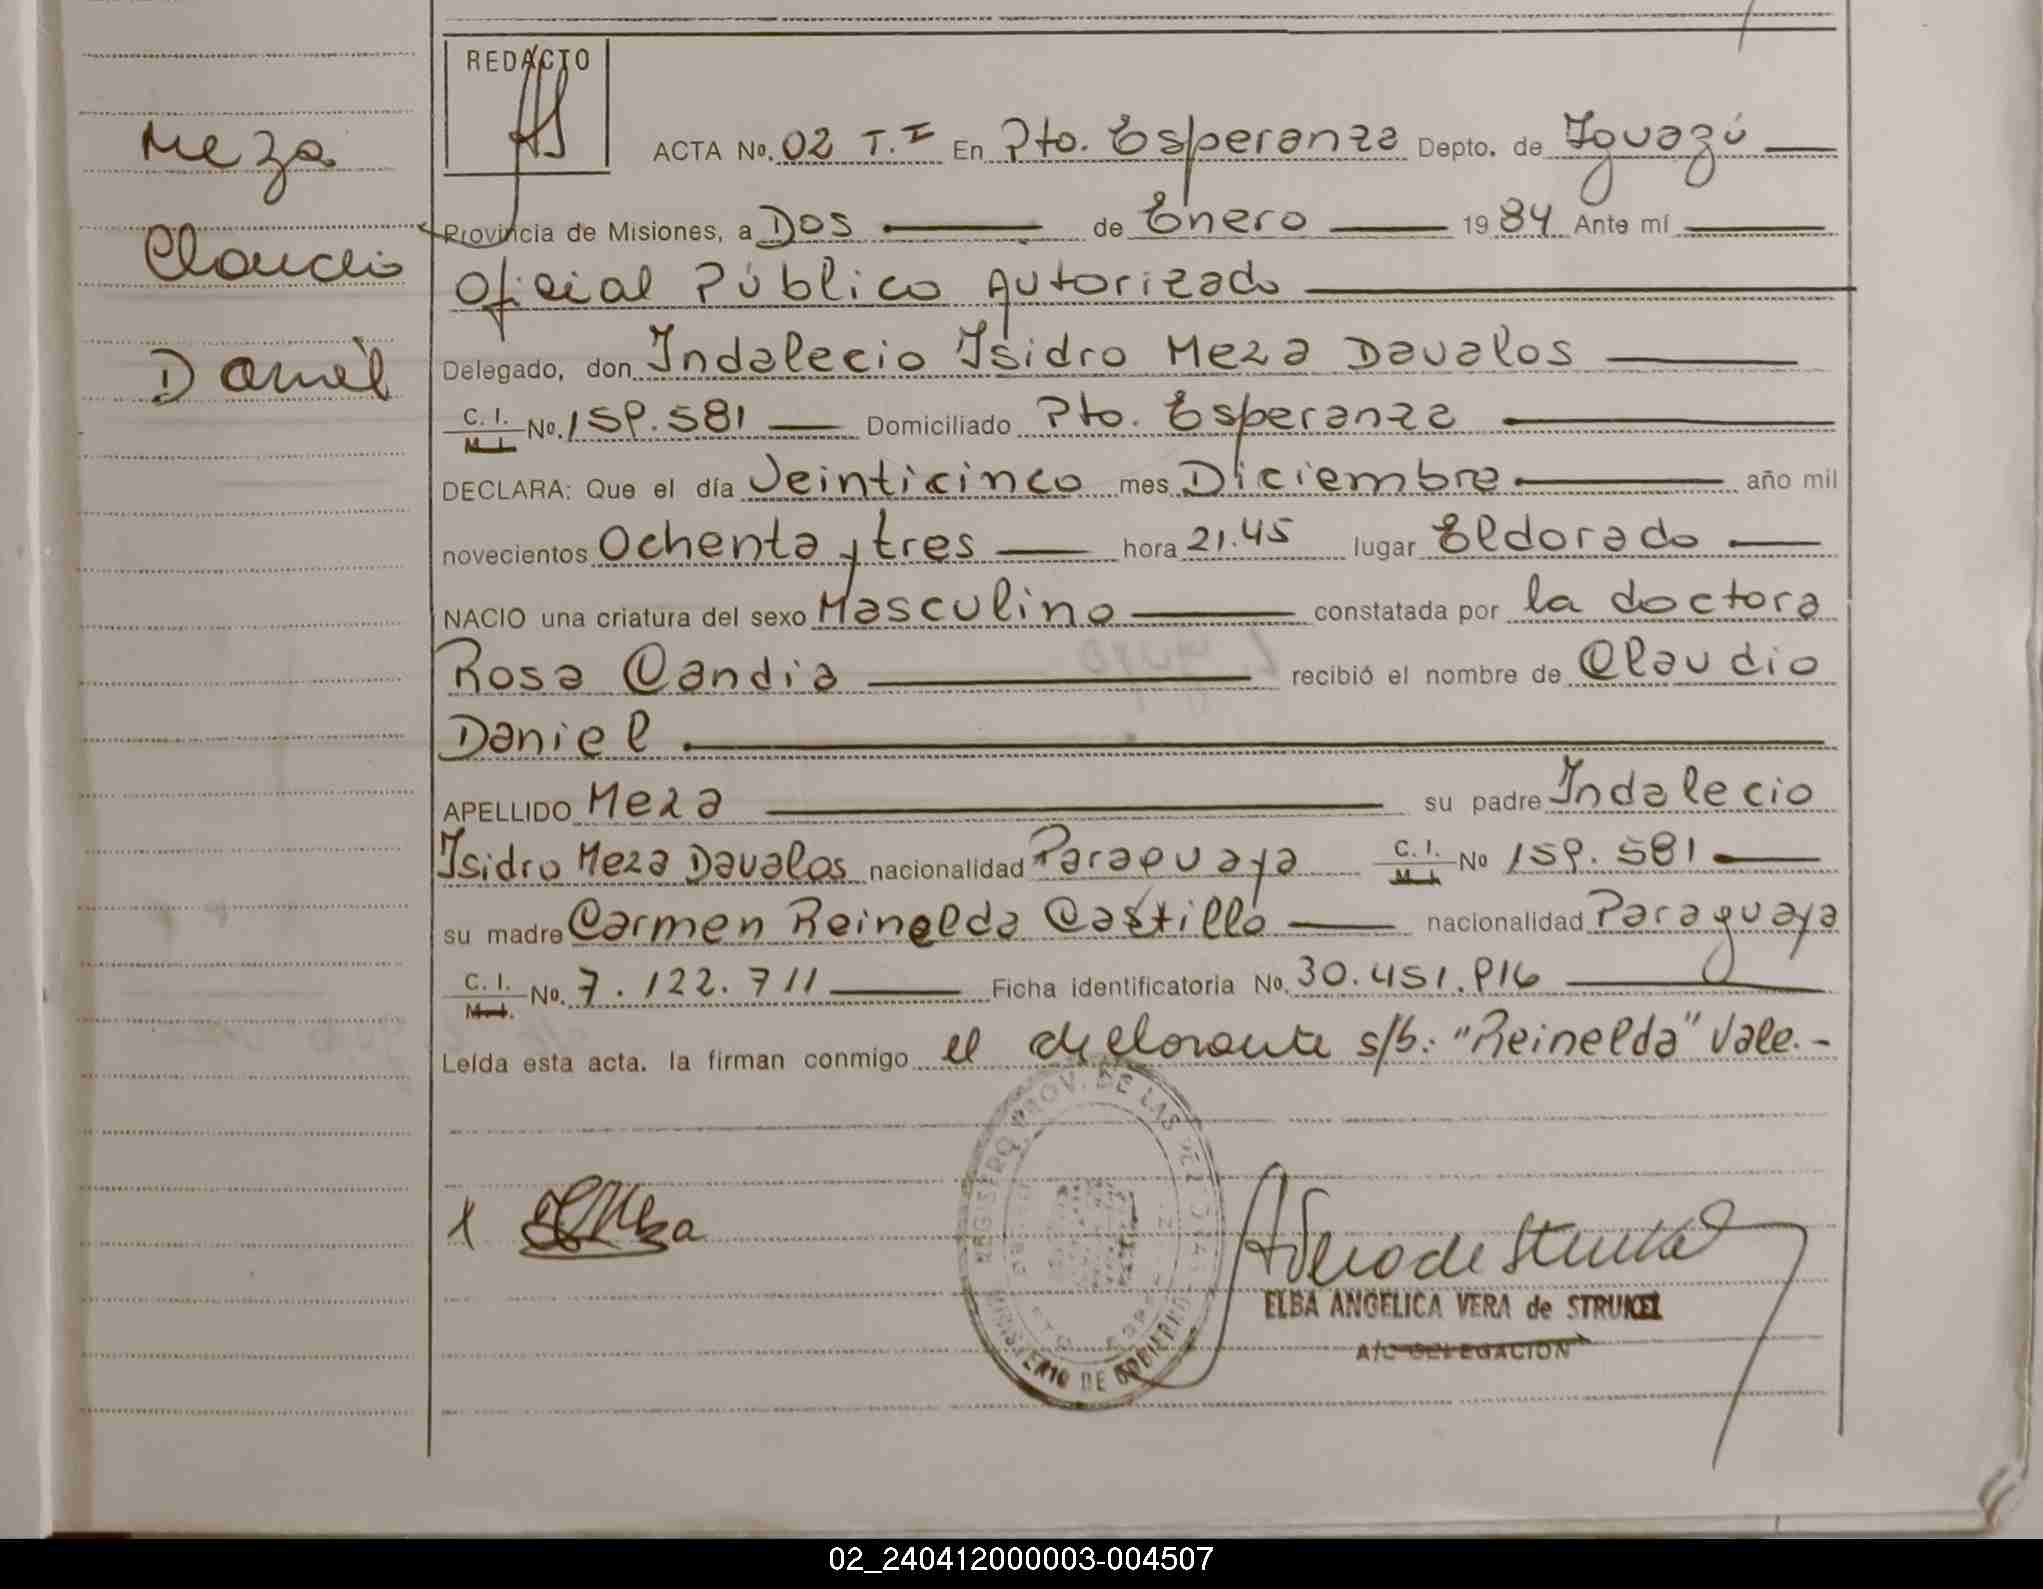 REDACTO
Meza
Claudio
Daniel
ACTA No. 02 T. I En Pto. Esperanza Depto. de Iguazú
Provincia de Misiones, a Dos de Enero 1984 Ante mí
Oficial Público Autorizado
Delegado, don Indalecio Isidro Meza Davalos
C. I. M. I. No. 159.581 Domiciliado Pto. Esperanza
DECLARA: Que el día Veinticinco mes Diciembre año mil
novecientos Ochenta y tres hora 21.45 lugar Eldorado
NACIO una criatura del sexo Masculino constatada por la doctora
Rosa Candia recibió el nombre de Claudio
Daniel
APELLIDO Meza su padre Indalecio
Isidro Meza Davalos nacionalidad Paraguaya C. I. M. I. No 159.581
su madre Carmen Reinelda Castillo nacionalidad Paraguaya
C. I. M. I. No. 7.122.711 Ficha identificatoria No. 30.451.916
Leída esta acta. la firman conmigo el declorante s/b: "Reinelda" Vale.-
REGISTRO PROV. DE LAS PERSONAS
MINISTERIO DE GOBIERNO
x Meza
ELBA ANGELICA VERA de STRUKEL
A/C DELEGACION
02_240412000003-004507